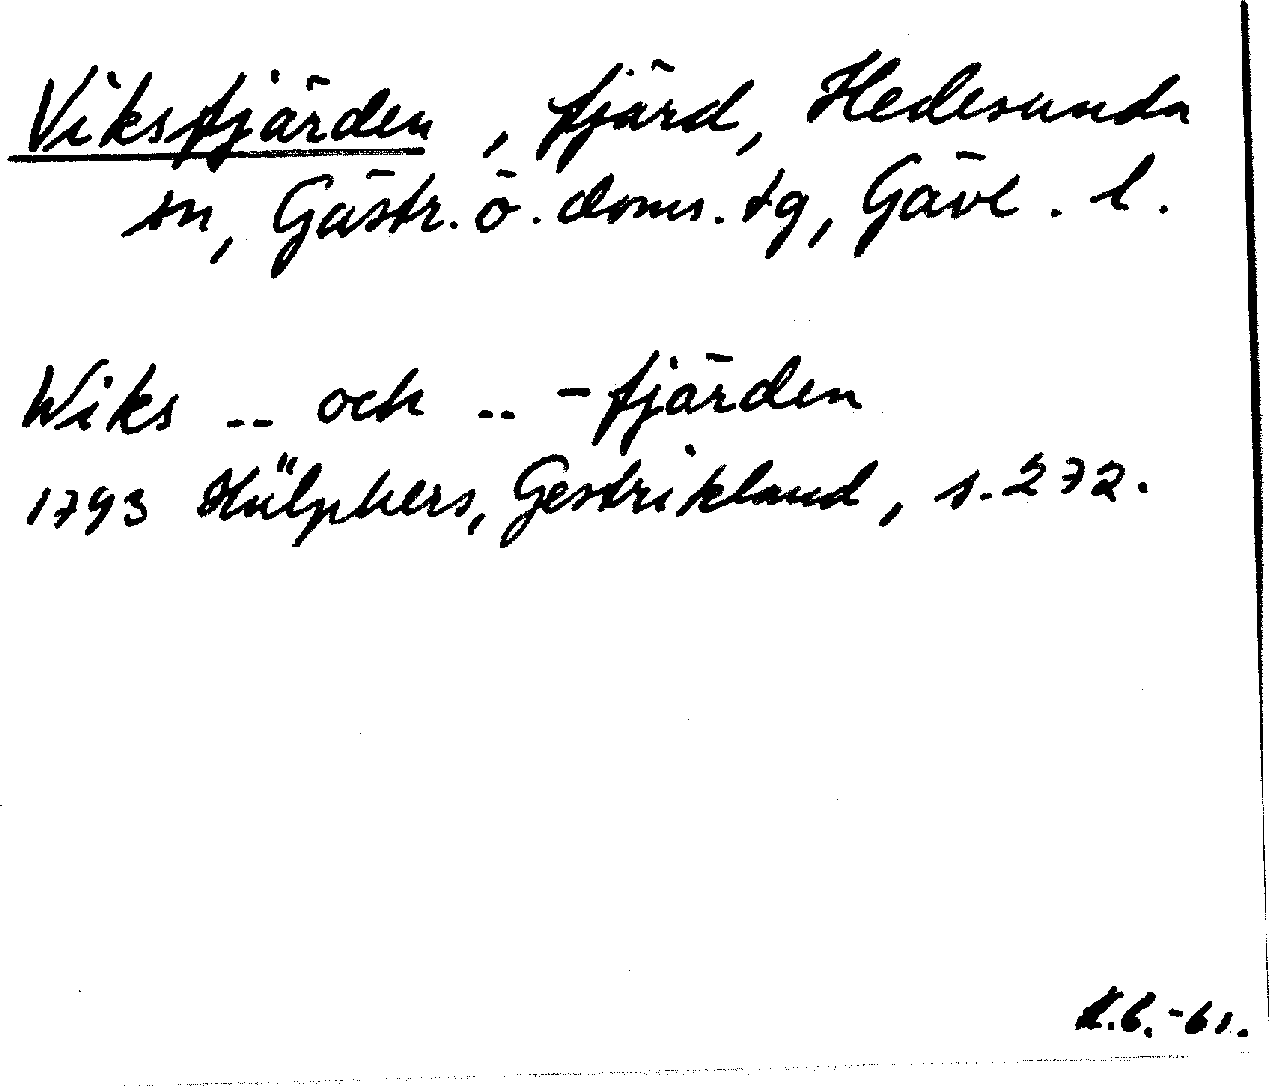 Viksfjärden, fjärd, Hedesunda
sn, Gästr. ö. doms. tg, Gävl. l.
Wiks -- och -- -fjärden
1793 Hülphers, Gestrikland, s. 272.